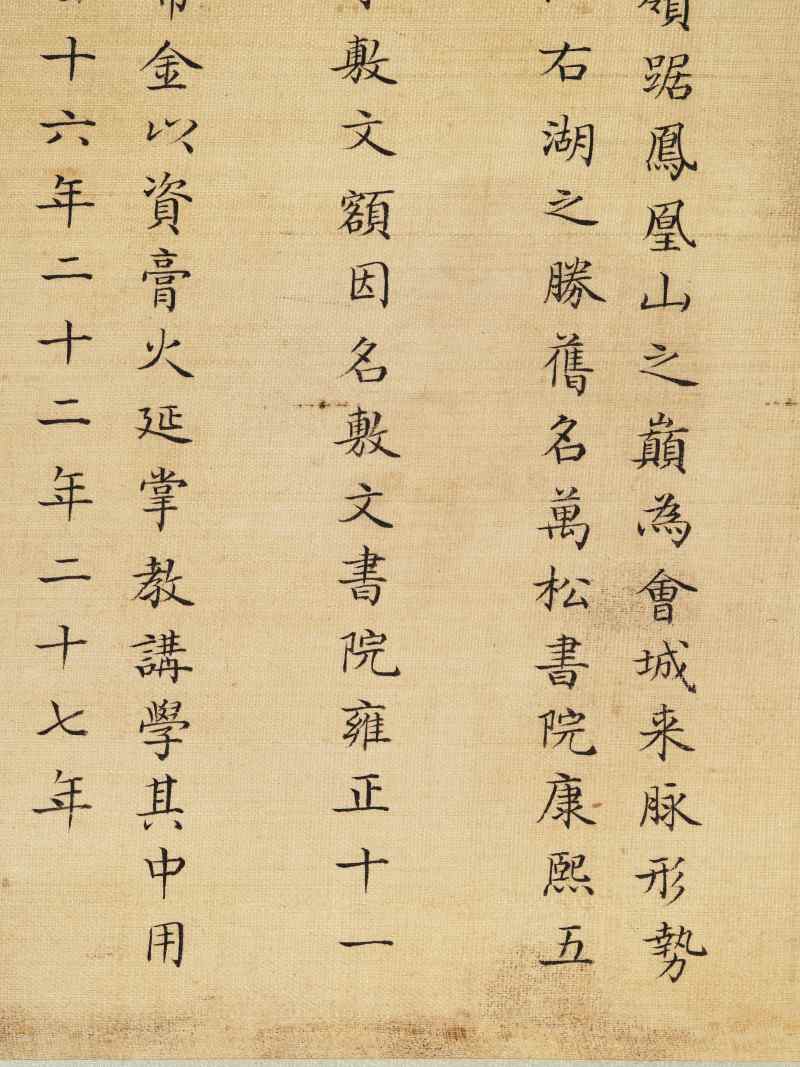 嶺踞鳳凰山之巔為會城来脉形勢
右湖之勝舊名萬松書院康熙五
敷文額因名敷文書院雍正十一
帑金以資膏火延掌教講學其中用
十六年二十二年二十七年